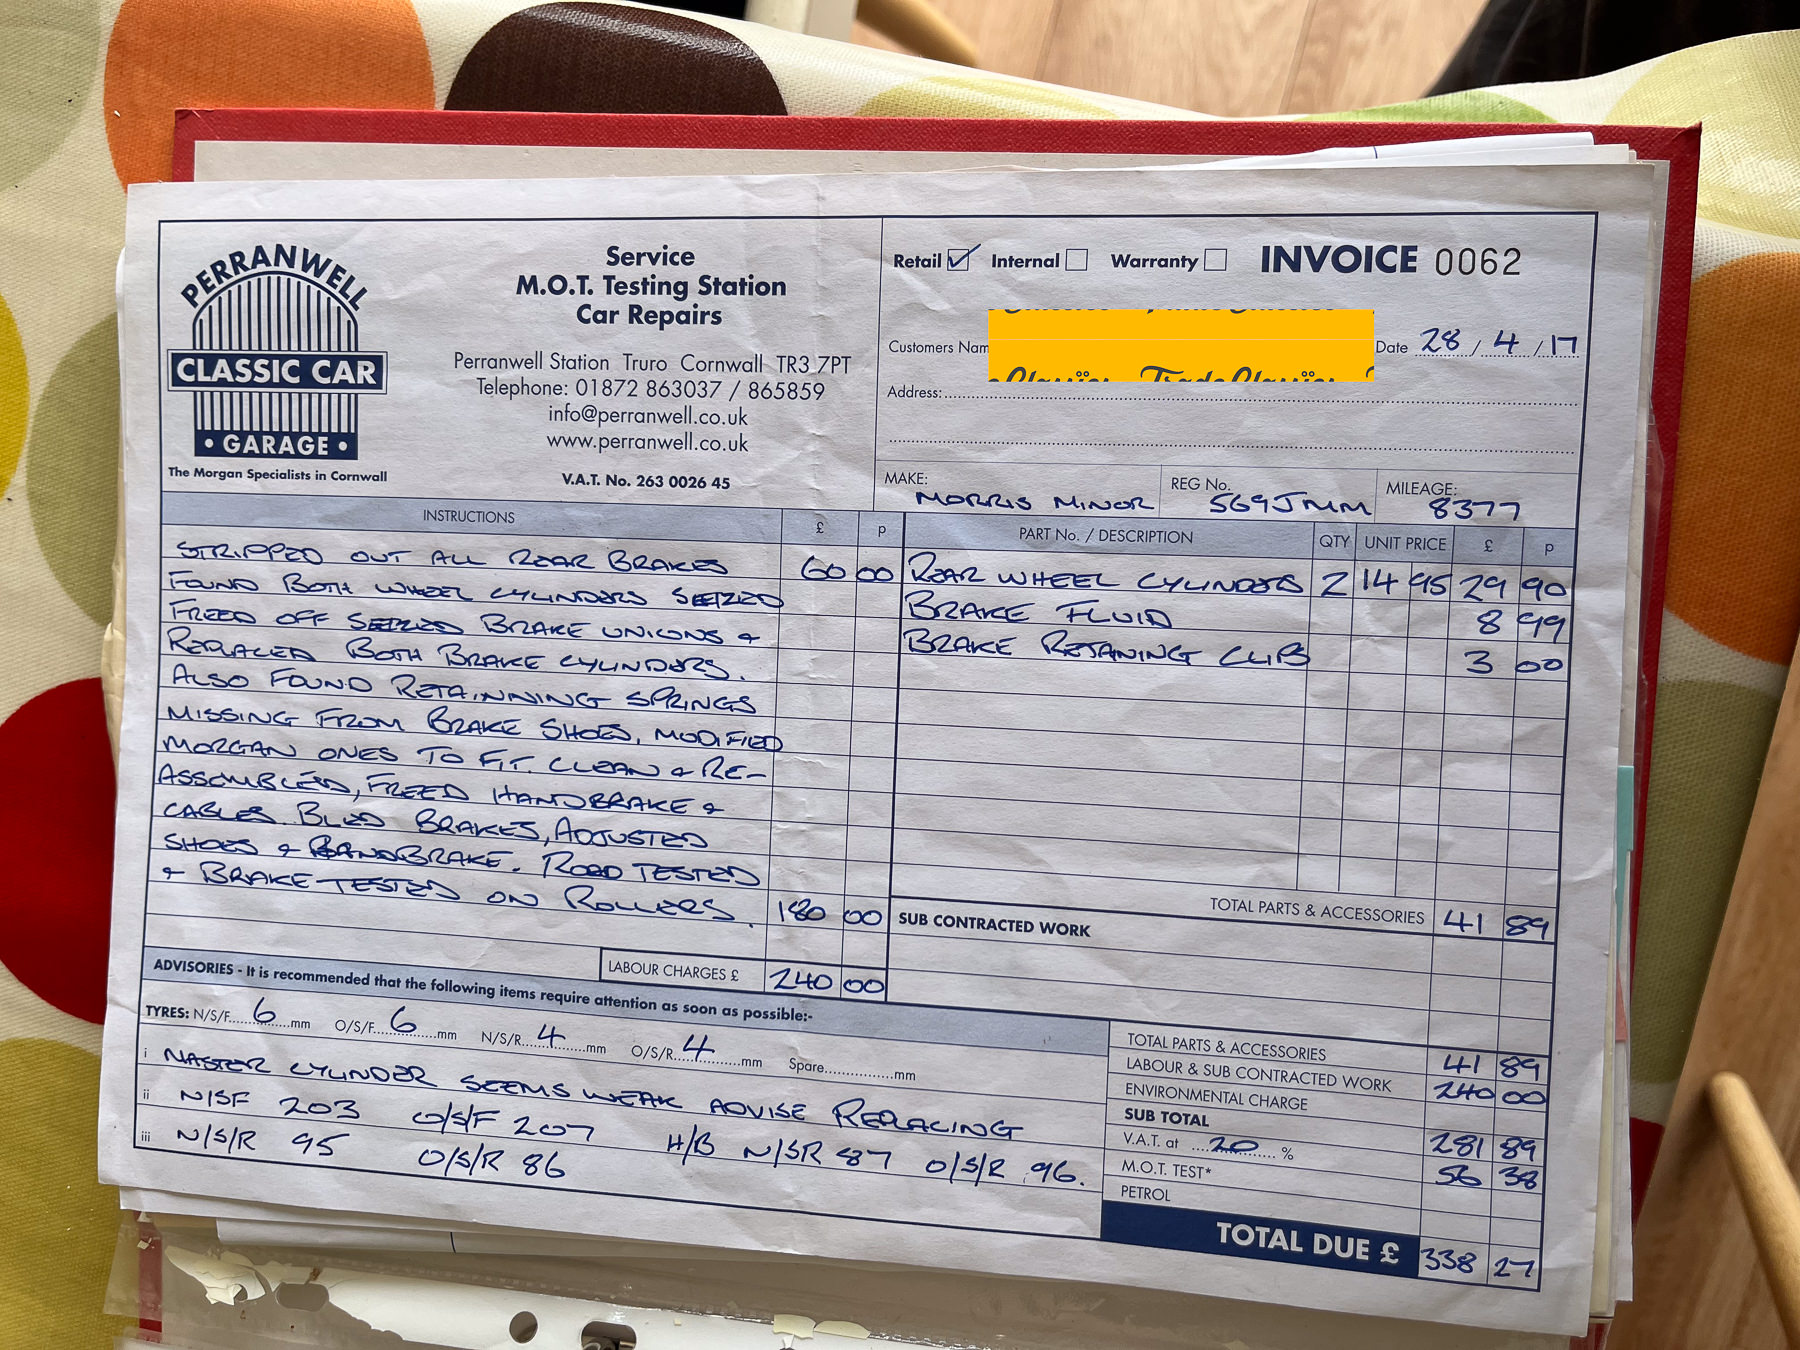 PERRANWELL
CLASSIC CAR
• GARAGE •
The Morgan Specialists in Cornwall
Service
M.O.T. Testing Station
Car Repairs
Perranwell Station Truro Cornwall TR3 7PT
Telephone: 01872 863037 / 865859
info@perranwell.co.uk
www.perranwell.co.uk
V.A.T. No. 263 0026 45
Retail Internal Warranty INVOICE 0062
Customers Nam Date 28 / 4 / 17
Trade Classics
Address:
MAKE: MORRIS MINOR REG No. 569JMM MILEAGE: 8377
INSTRUCTIONS £ p
STRIPPED OUT ALL REAR BRAKES 60 00
FOUND BOTH WHEEL CYLINDERS SEIZED
FREED OFF SEIZED BRAKE UNIONS &
REPLACED BOTH BRAKE CYLINDERS.
ALSO FOUND RETAINNING SPRINGS
MISSING FROM BRAKE SHOES, MODIFIED
MORGAN ONES TO FIT. CLEAN & RE-
ASSEMBLED, FREED HANDBRAKE &
CABLES. BLED BRAKES, ADJUSTED
SHOES & HANDBRAKE. ROAD TESTED
& BRAKE TESTED ON ROLLERS. 180 00
LABOUR CHARGES £ 240 00
PART No. / DESCRIPTION QTY UNIT PRICE £ p
REAR WHEEL CYLINDERS 2 14 95 29 90
BRAKE FLUID 8 99
BRAKE RETANING CLIPS 3 00
TOTAL PARTS & ACCESSORIES 41 89
SUB CONTRACTED WORK
ADVISORIES - It is recommended that the following items require attention as soon as possible:-
TYRES: N/S/F 6 mm O/S/F 6 mm N/S/R 4 mm O/S/R 4 mm Spare mm
i MASTER CYLINDER SEEMS WEAK ADVISE REPLACING
ii N/SF 203 O/S/F 207
iii N/S/R 95 O/S/R 86 H/B N/SR 87 O/S/R 96.
TOTAL PARTS & ACCESSORIES 41 89
LABOUR & SUB CONTRACTED WORK 240 00
ENVIRONMENTAL CHARGE
SUB TOTAL 281 89
V.A.T. at 20 % 56 38
M.O.T. TEST*
PETROL
TOTAL DUE £ 338 27